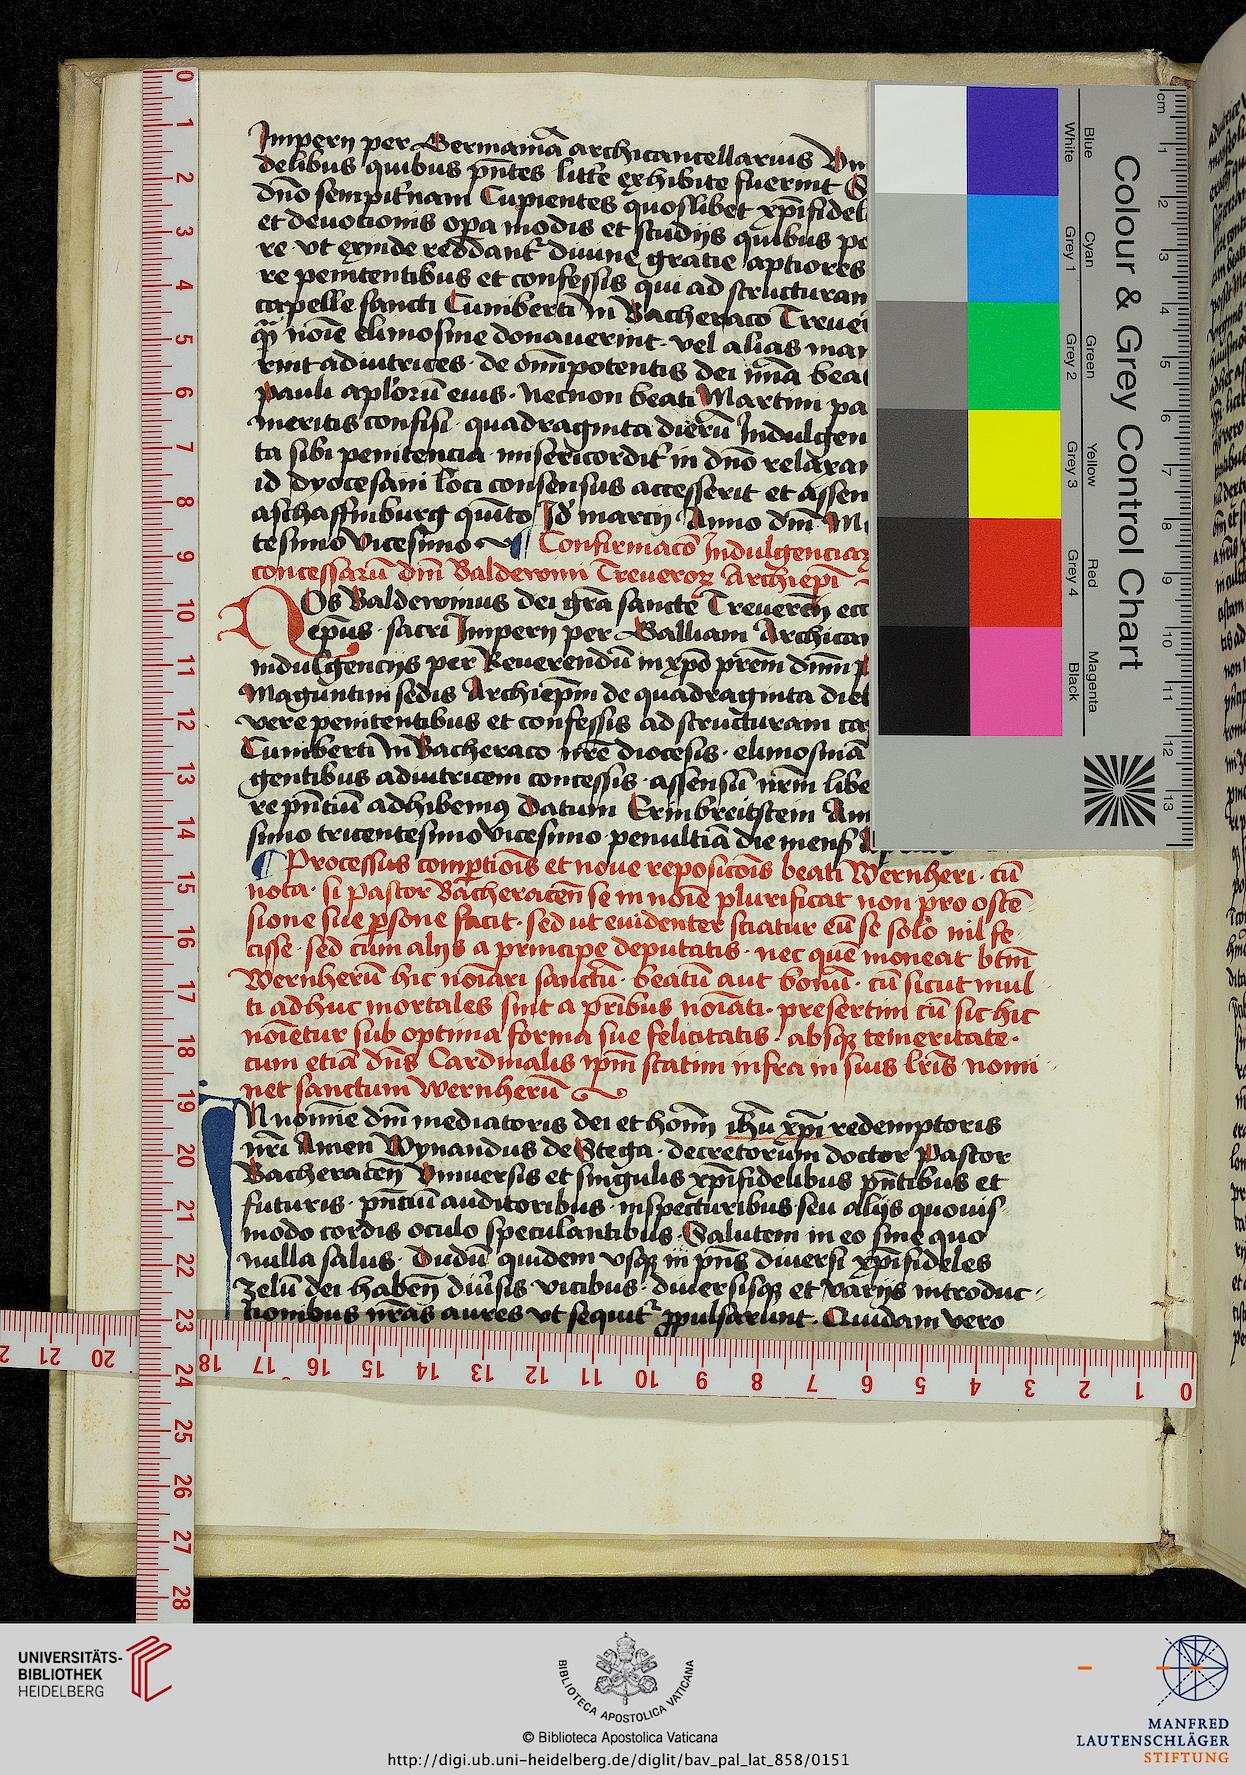 Imperij per Germaniā archicancellarius Vn
delibus quibus pn̄tes litt̄e exhibite fuerint S
dn̄o sempit'nam Cupientes quoslibet xp̄ifidel
et deuotionis opa modis et studijs quibus po
re vt exinde reddant' diuine gratie aptiores
re penitentibus et confessis qui ad structuram
capelle sancti Cuniberti In Bacheraco Treuer
noīe elimosine donauerint vel alias man
rint adiutrices de omīpotentis dei mīa beat
pauli aplorū eius necnon beati Martini pa
meritis confisi quadraginta dierū Indulgen
ta sibi penitencia misericordit' in dn̄o relaxan
id dyocesani loci consensus accesserit et assen
aschaffinburg quīto Id' marcij Anno dn̄i M
tesimo vicesimo Confirmacō Indulgenciar
concessarū dn̄i Balderoni Treueror Archiepī
Os Baldewinus dei grā sancte Treuereн̄ ecc
epūs sacri Imperij per Galliam Archican
indulgencijs per Reuerendū in xp̄o prēm dnīm
Maguntini sedis Archiepīm de quadraginta dier
vere penitentibus et confessis ad structuram ca
Cuniberti In Bacheraco nr̄e diocesis elimosinā
gentibus adiutricem concessis assensū nrm̄ libe
re pn̄tiū adhibemus Datum Erimbreitstein An
simo tricentesimo vicesimo penultīa die mens
Processus comptiōis et noue reposicōis beati Wernheri cū
nota si pastor Bacheraceн̄ se in noīe plurificat non pro oste
sione sue psone facit sed ut euidenter sciatur eū se solo nil fe
cisse sed cum alijs a principe deputatis nec quē moneat btm̄
Wernherū hic noīari sanctū beatū aut bonū cū sicut mul
ti adhuc mortales sint a pribus noīati presertim cū sic hic
noīetur sub optima forma sue felicitatis absq temeritate
cum etiā dn̄s Cardinalis ipm̄ statim infra in suis lrīs nomi
net sanctum wernherū
N nomine dn̄i mediatoris dei et homī ihū xp̄i redemptoris
nr̄i Amen Wynandus de Stega decretorum doctor Pastor
Bacheraceн̄ Vniuersis et singulis xp̄ifidelibus pn̄tibus et
futuris pn̄tiū auditoribus inspecturibus seu alijs quouis
modo cordis oculo speculantibus Salutem in eo sine quo
nulla salus Dudū quidem vsq in pn̄s diuersi xp̄ifideles
zelū dei habeн̄ diūsis vicibus diuersisq et varijs introduc
tionibus nr̄as aures vt sequit' ppulsarunt Quidam vero
Colour & Grey Control Chart
Blue Cyan Green Yellow Red Magenta
White Grey 1 Grey 2 Grey 3 Grey 4 Black
cm 1 2 3 4 5 6 7 8 9 10 11 12 13
0 1 2 3 4 5 6 7 8 9 10 11 12 13 14 15 16 17 18 19 20 21 22 23 24 25 26 27 28
21 20 18 17 16 15 14 13 12 11 10 9 8 7 6 5 4 3 2 1 0
UNIVERSITÄTS-
BIBLIOTHEK
HEIDELBERG
BIBLIOTECA APOSTOLICA VATICANA
© Biblioteca Apostolica Vaticana
http://digi.ub.uni-heidelberg.de/diglit/bav_pal_lat_858/0151
MANFRED
LAUTENSCHLÄGER
STIFTUNG